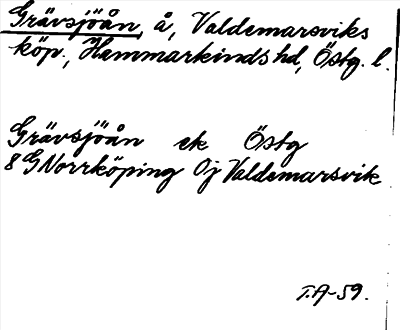 Grävsjöån, å, Valdemarsviks
köp., Hammarkinds hd, Östg. l.
Grävsjöån ek Östg
8 G Norrköping 0j Valdemarsvik
T.A-59.